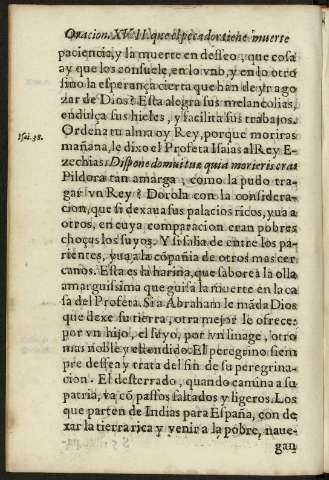 Oracion. XVII. que el pecador tiene muerte
paciencia, y la muerte en desseo, que cosa
ay que los consuele, en lo vno, y en lo otro
sino la esperança cierta que han de yr a go
zar de Dios? Esta alegra sus melancolias,
endulça sus hieles, y facilita sus trabajos.
Ordena tu alma oy Rey, porque moriras
Isai. 38.
mañana, le dixo el Profeta Isaias al Rey E-
zechias: Dispone domui tuæ quia morieris cras
Pildora tan amarga, como la pudo tra-
gar vn Rey? Dorola con la considera-
cion, que si dexaua sus palacios ricos, yua a
otros, en cuya comparacion eran pobres
choças los suyos. Y si salia de entre los pa-
rientes, yua a la cõpañia de otros mas cer
canos. Esta es la harina, que saboreà la olla
amarguissima que guisa la muerte en la ca
sa del Profeta. Si a Abraham le mãda Dios
que dexe su tierra, otra mejor le ofrece:
por vn hijo, el suyo, por vn linage, otro
mas noble y estendido. El peregrino siem
pre dessea y trata del fin de su peregrina-
cion. El desterrado, quando camina a su
patria, va cõ passos saltados y ligeros. Los
que parten de Indias para España, con de
xar la tierra rica y venir a la pobre, naue-
gan